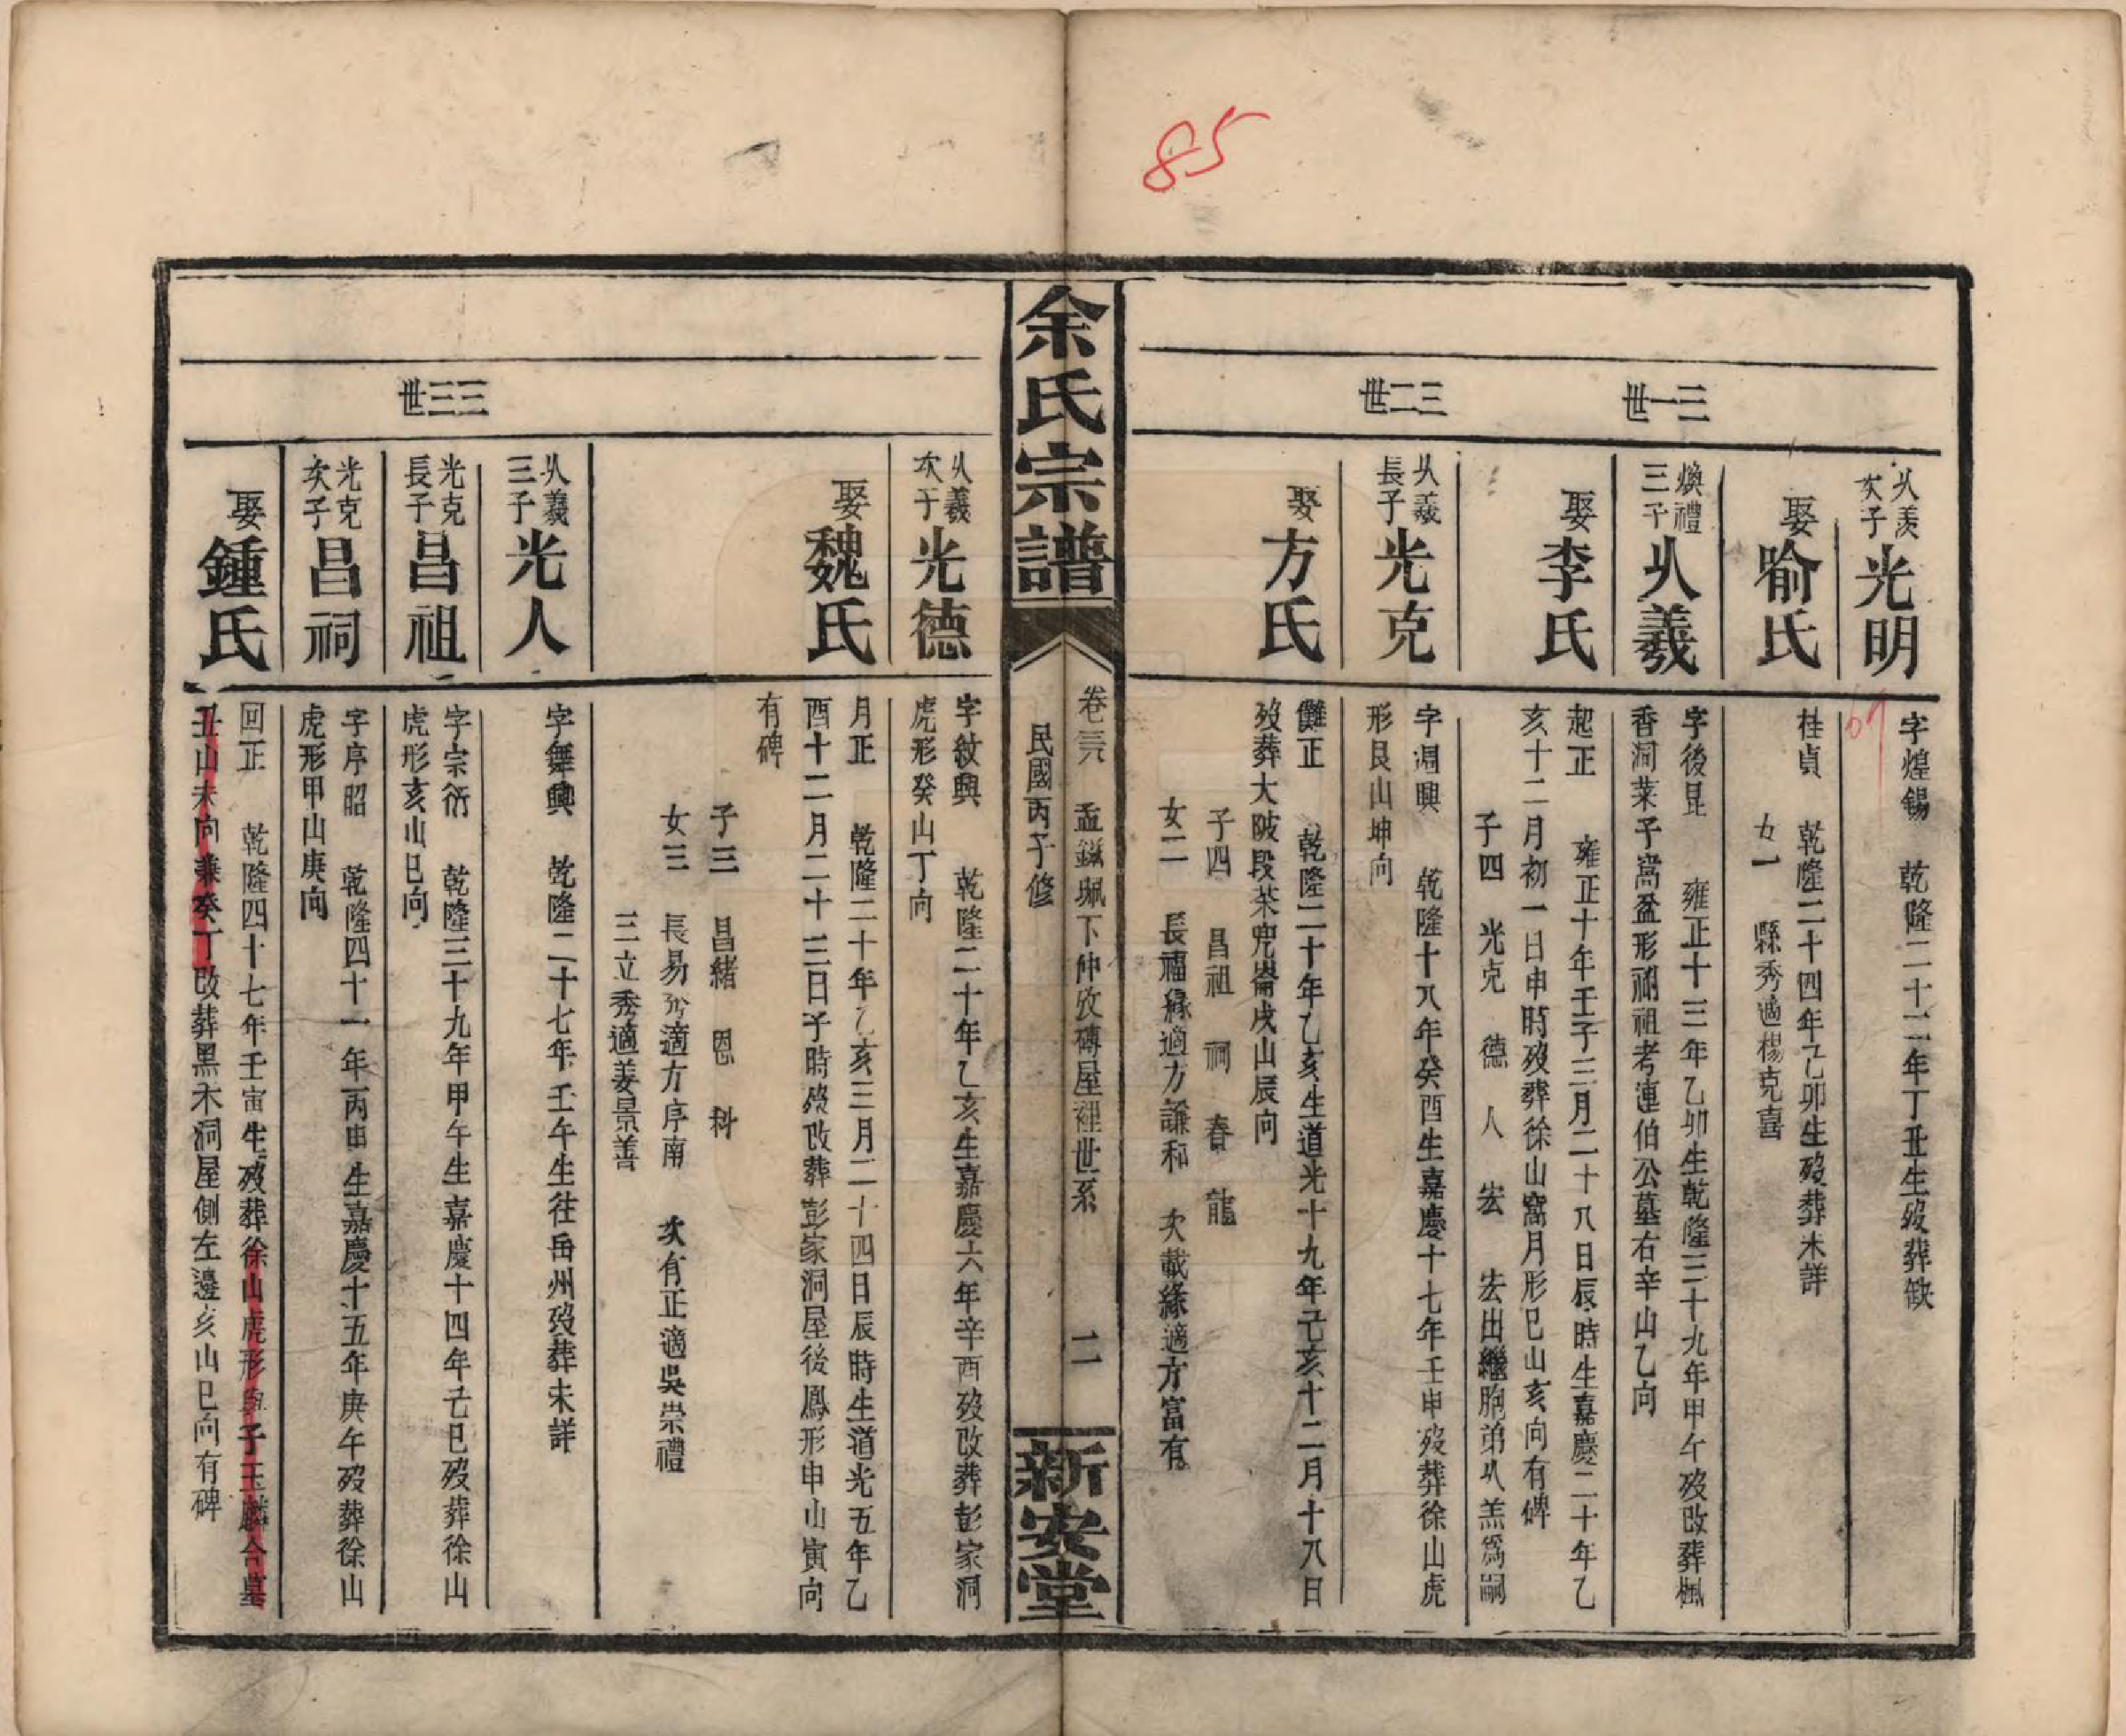 85
乆羨
次子
光明
字煌錫 乾隆二十二年丁丑生歿葬缺
69
娶喻氏
桂貞 乾隆二十四年乙卯生歿葬未詳
女一 縣秀適楊克喜
三一世
煥禮
三子
乆羲
字後昆 雍正十三年乙卯生乾隆三十九年甲午歿改葬楓
香洞菜子窩盈形祔祖考連伯公墓右辛山乙向
娶李氏
起正 雍正十年壬子三月二十八日辰時生嘉慶二十年乙
亥十二月初一日申時歿葬徐山窩月形巳山亥向有碑
子四 光克 德 人 宏 宏出繼胞弟乆羔爲嗣
三二世
乆羲
長子
光克
字溫興 乾隆十八年癸酉生嘉慶十七年壬申歿葬徐山虎
形艮山坤向
娶方氏
儺正 乾隆二十年乙亥生道光十九年己亥十二月十八日
歿葬大陂段茶兜崙戌山辰向
子四 昌祖 祠 春 龍
女二 長福緣適方謙和 次載緣適方富有
余氏宗譜
卷三六 孟鎡珮下仲攺磚屋裡世系 二
民國丙子修
新安堂
乆羲
次子
光德
字紋興 乾隆二十年乙亥生嘉慶六年辛酉歿改葬彭家洞
虎形癸山丁向
娶魏氏
月正 乾隆二十年乙亥三月二十四日辰時生道光五年乙
酉十二月二十三日子時歿改葬彭家洞屋後鳳形申山寅向
有碑
子三 昌緒 恩 科
女三 長易秀適方序南 次有正適吳崇禮
三立秀適姜景善
乆羲
三子
光人
字舞興 乾隆二十七年壬午生往岳州歿葬未詳
三三世
光克
長子
昌祖
字宗衍 乾隆三十九年甲午生嘉慶十四年己巳歿葬徐山
虎形亥山巳向
光克
次子
昌祠
字序昭 乾隆四十一年丙申生嘉慶十五年庚午歿葬徐山
虎形甲山庚向
娶鍾氏
回正 乾隆四十七年壬寅生歿葬徐山虎形與子玉麟合墓
丑山未向兼癸丁改葬黑木洞屋側左邊亥山巳向有碑